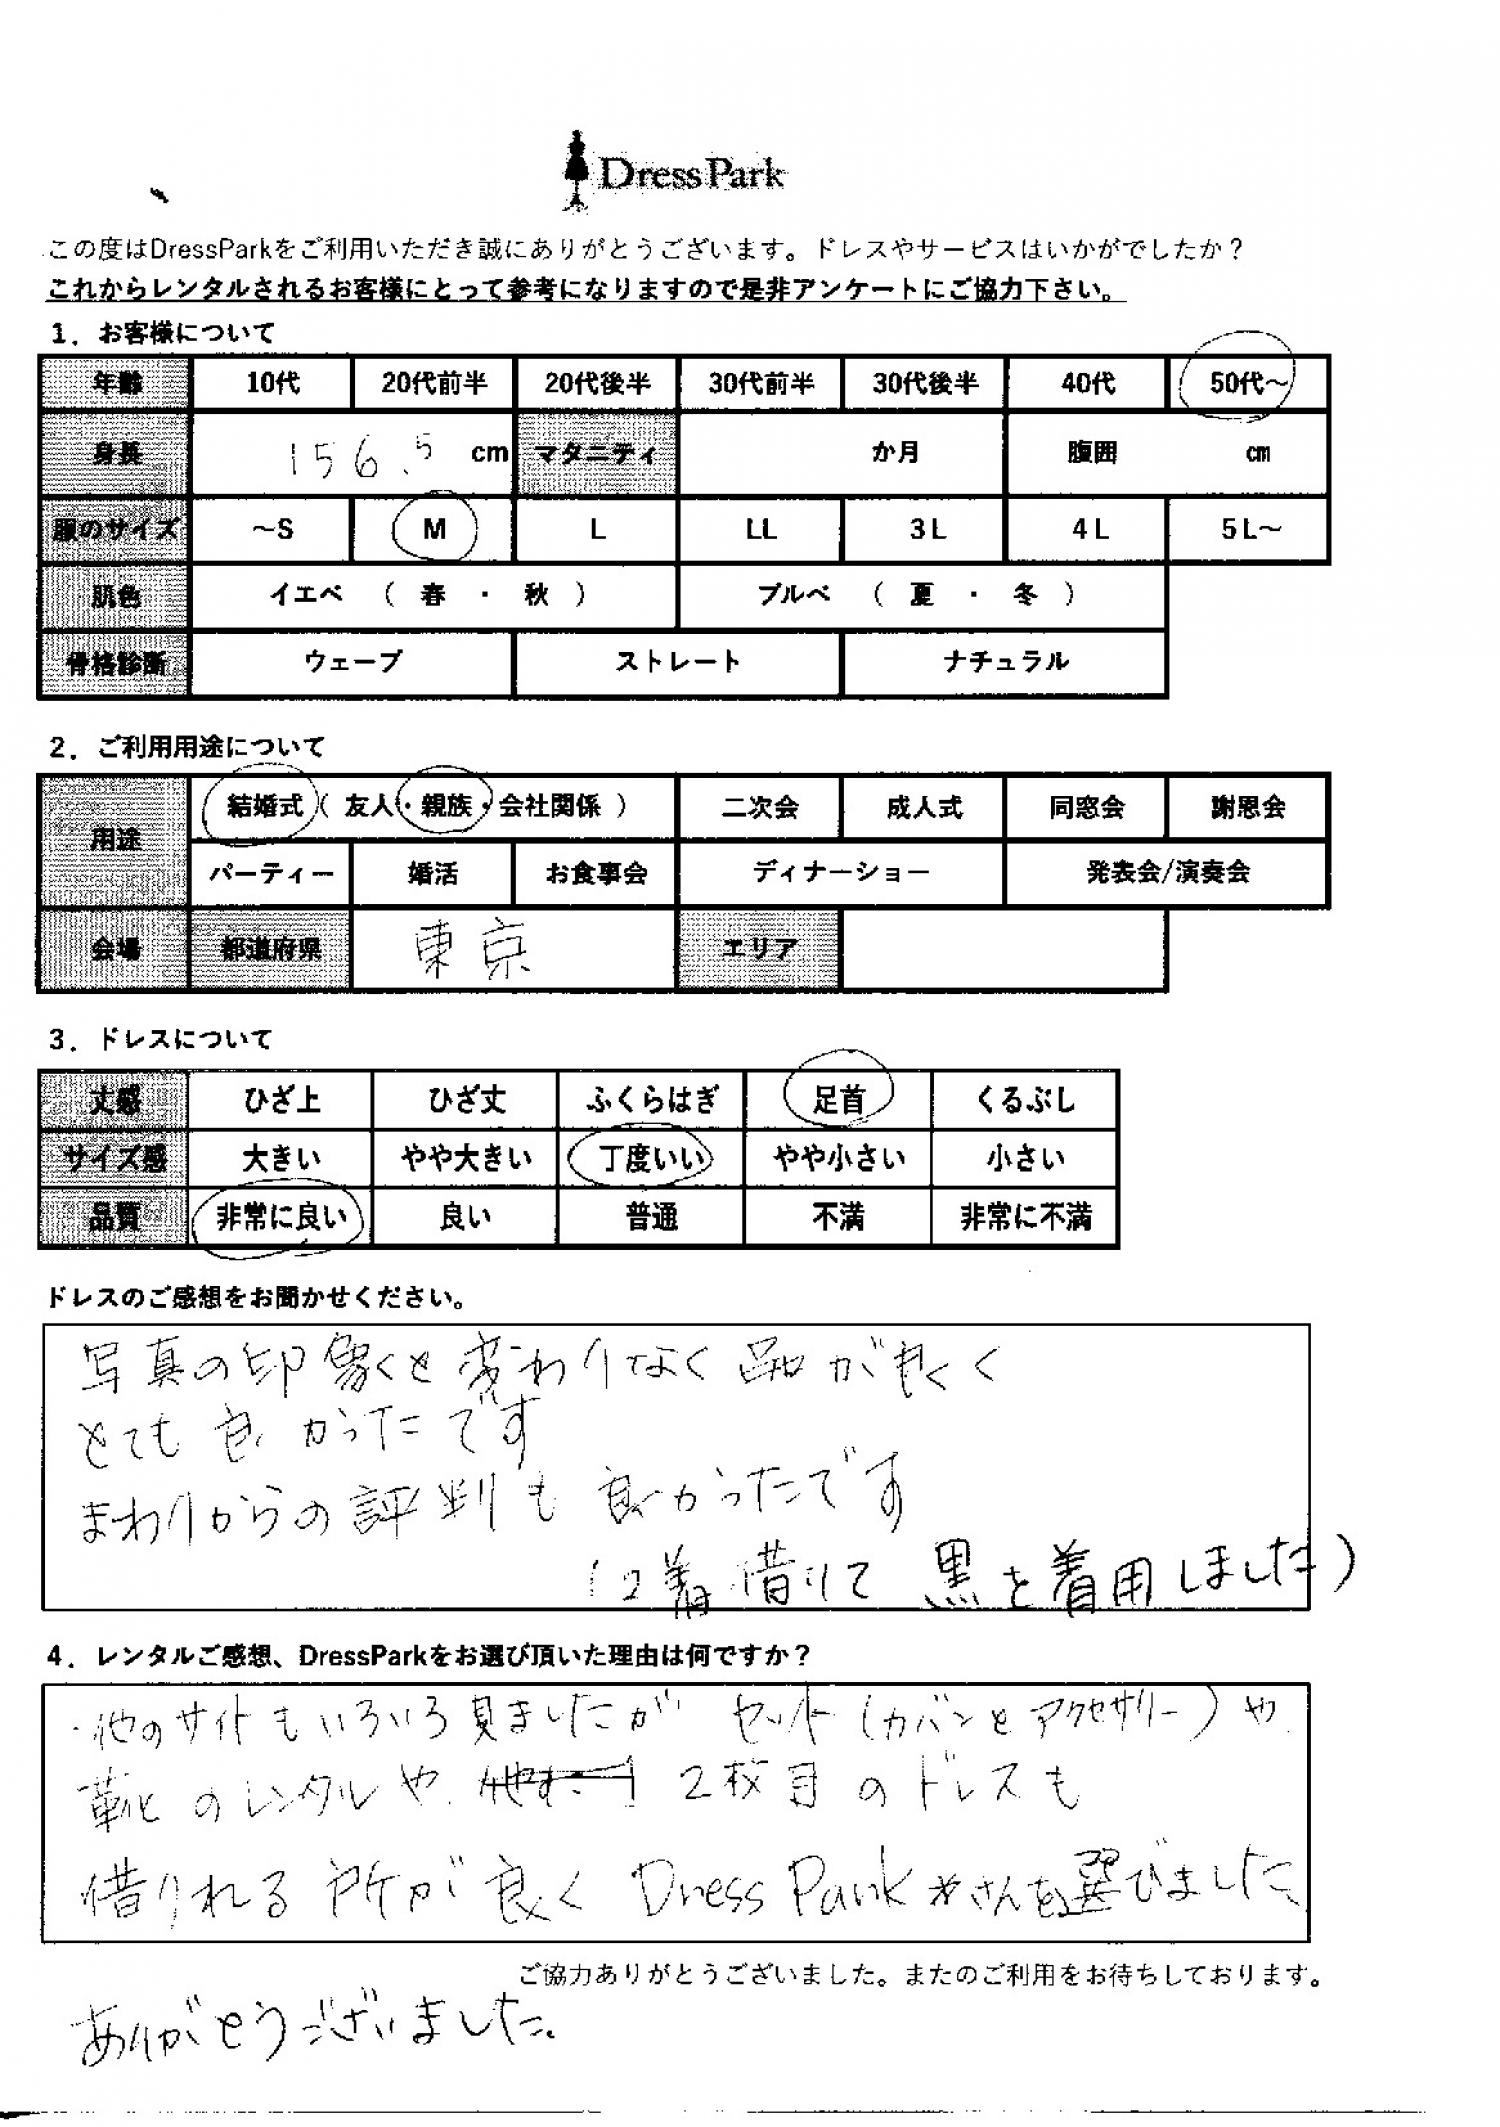 DressPark
この度はDressParkをご利用いただき誠にありがとうございます。ドレスやサービスはいかがでしたか？
これからレンタルされるお客様にとって参考になりますので是非アンケートにご協力下さい。
1．お客様について
年齢 10代 20代前半 20代後半 30代前半 30代後半 40代 50代～
身長 156.5 cm マタニティ か月 腹囲 cm
服のサイズ ～S M L LL 3L 4L 5L～
肌色 イエベ （ 春 ・ 秋 ） ブルベ （ 夏 ・ 冬 ）
骨格診断 ウェーブ ストレート ナチュラル
2．ご利用用途について
用途 結婚式（ 友人・親族・会社関係 ） 二次会 成人式 同窓会 謝恩会
パーティー 婚活 お食事会 ディナーショー 発表会/演奏会
会場 都道府県 東京 エリア
3．ドレスについて
丈感 ひざ上 ひざ丈 ふくらはぎ 足首 くるぶし
サイズ感 大きい やや大きい 丁度いい やや小さい 小さい
品質 非常に良い 良い 普通 不満 非常に不満
ドレスのご感想をお聞かせください。
写真の印象と変わりなく品が良く
とても良かったです
まわりからの評判も良かったです
（2着借りて黒を着用しました）
4．レンタルご感想、DressParkをお選び頂いた理由は何ですか？
・他のサイトもいろいろ見ましたが セット（カバンとアクセサリー）や
靴のレンタルや 2枚目のドレスも
借りれる所が良く Dress Parkさんを選びました
ご協力ありがとうございました。またのご利用をお待ちしております。
ありがとうございました。